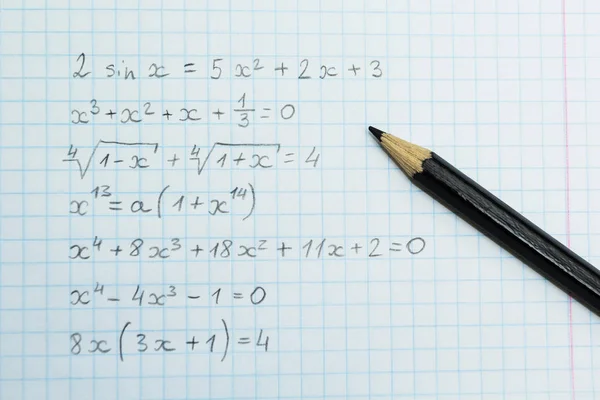 2 sin x = 5x² + 2x + 3
x³ + x² + x + 1/3 = 0
⁴√(1-x) + ⁴√(1+x) = 4
x¹³ = a(1 + x¹⁴)
x⁴ + 8x³ + 18x² + 11x + 2 = 0
x⁴ - 4x³ - 1 = 0
8x(3x + 1) = 4